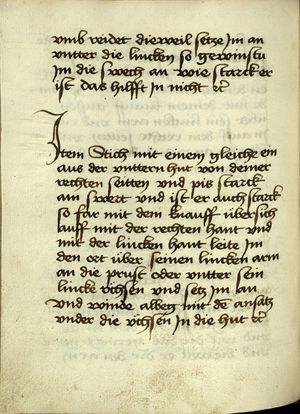 vmb reidet dieweil setze im an
vntter die lincken so gewinstu
Im die swech an wie starck er
ist das hilfft in nicht etc
Item Stich mit einem gleiche ein
aus der vntternhut von deiner
rechten seitten vnd pis starck
am swert vnd ist er auch starck
so far mit dem knauff übersich
auff mit der rechten haut vnd
mit der lincken hant leite im
den ort über seinen lincken arm
an die prust oder vntter sein
lincke vchsen vnd setz im an
vnd winde albeg mit de ansatz
vnder die vchsen In die hut etc